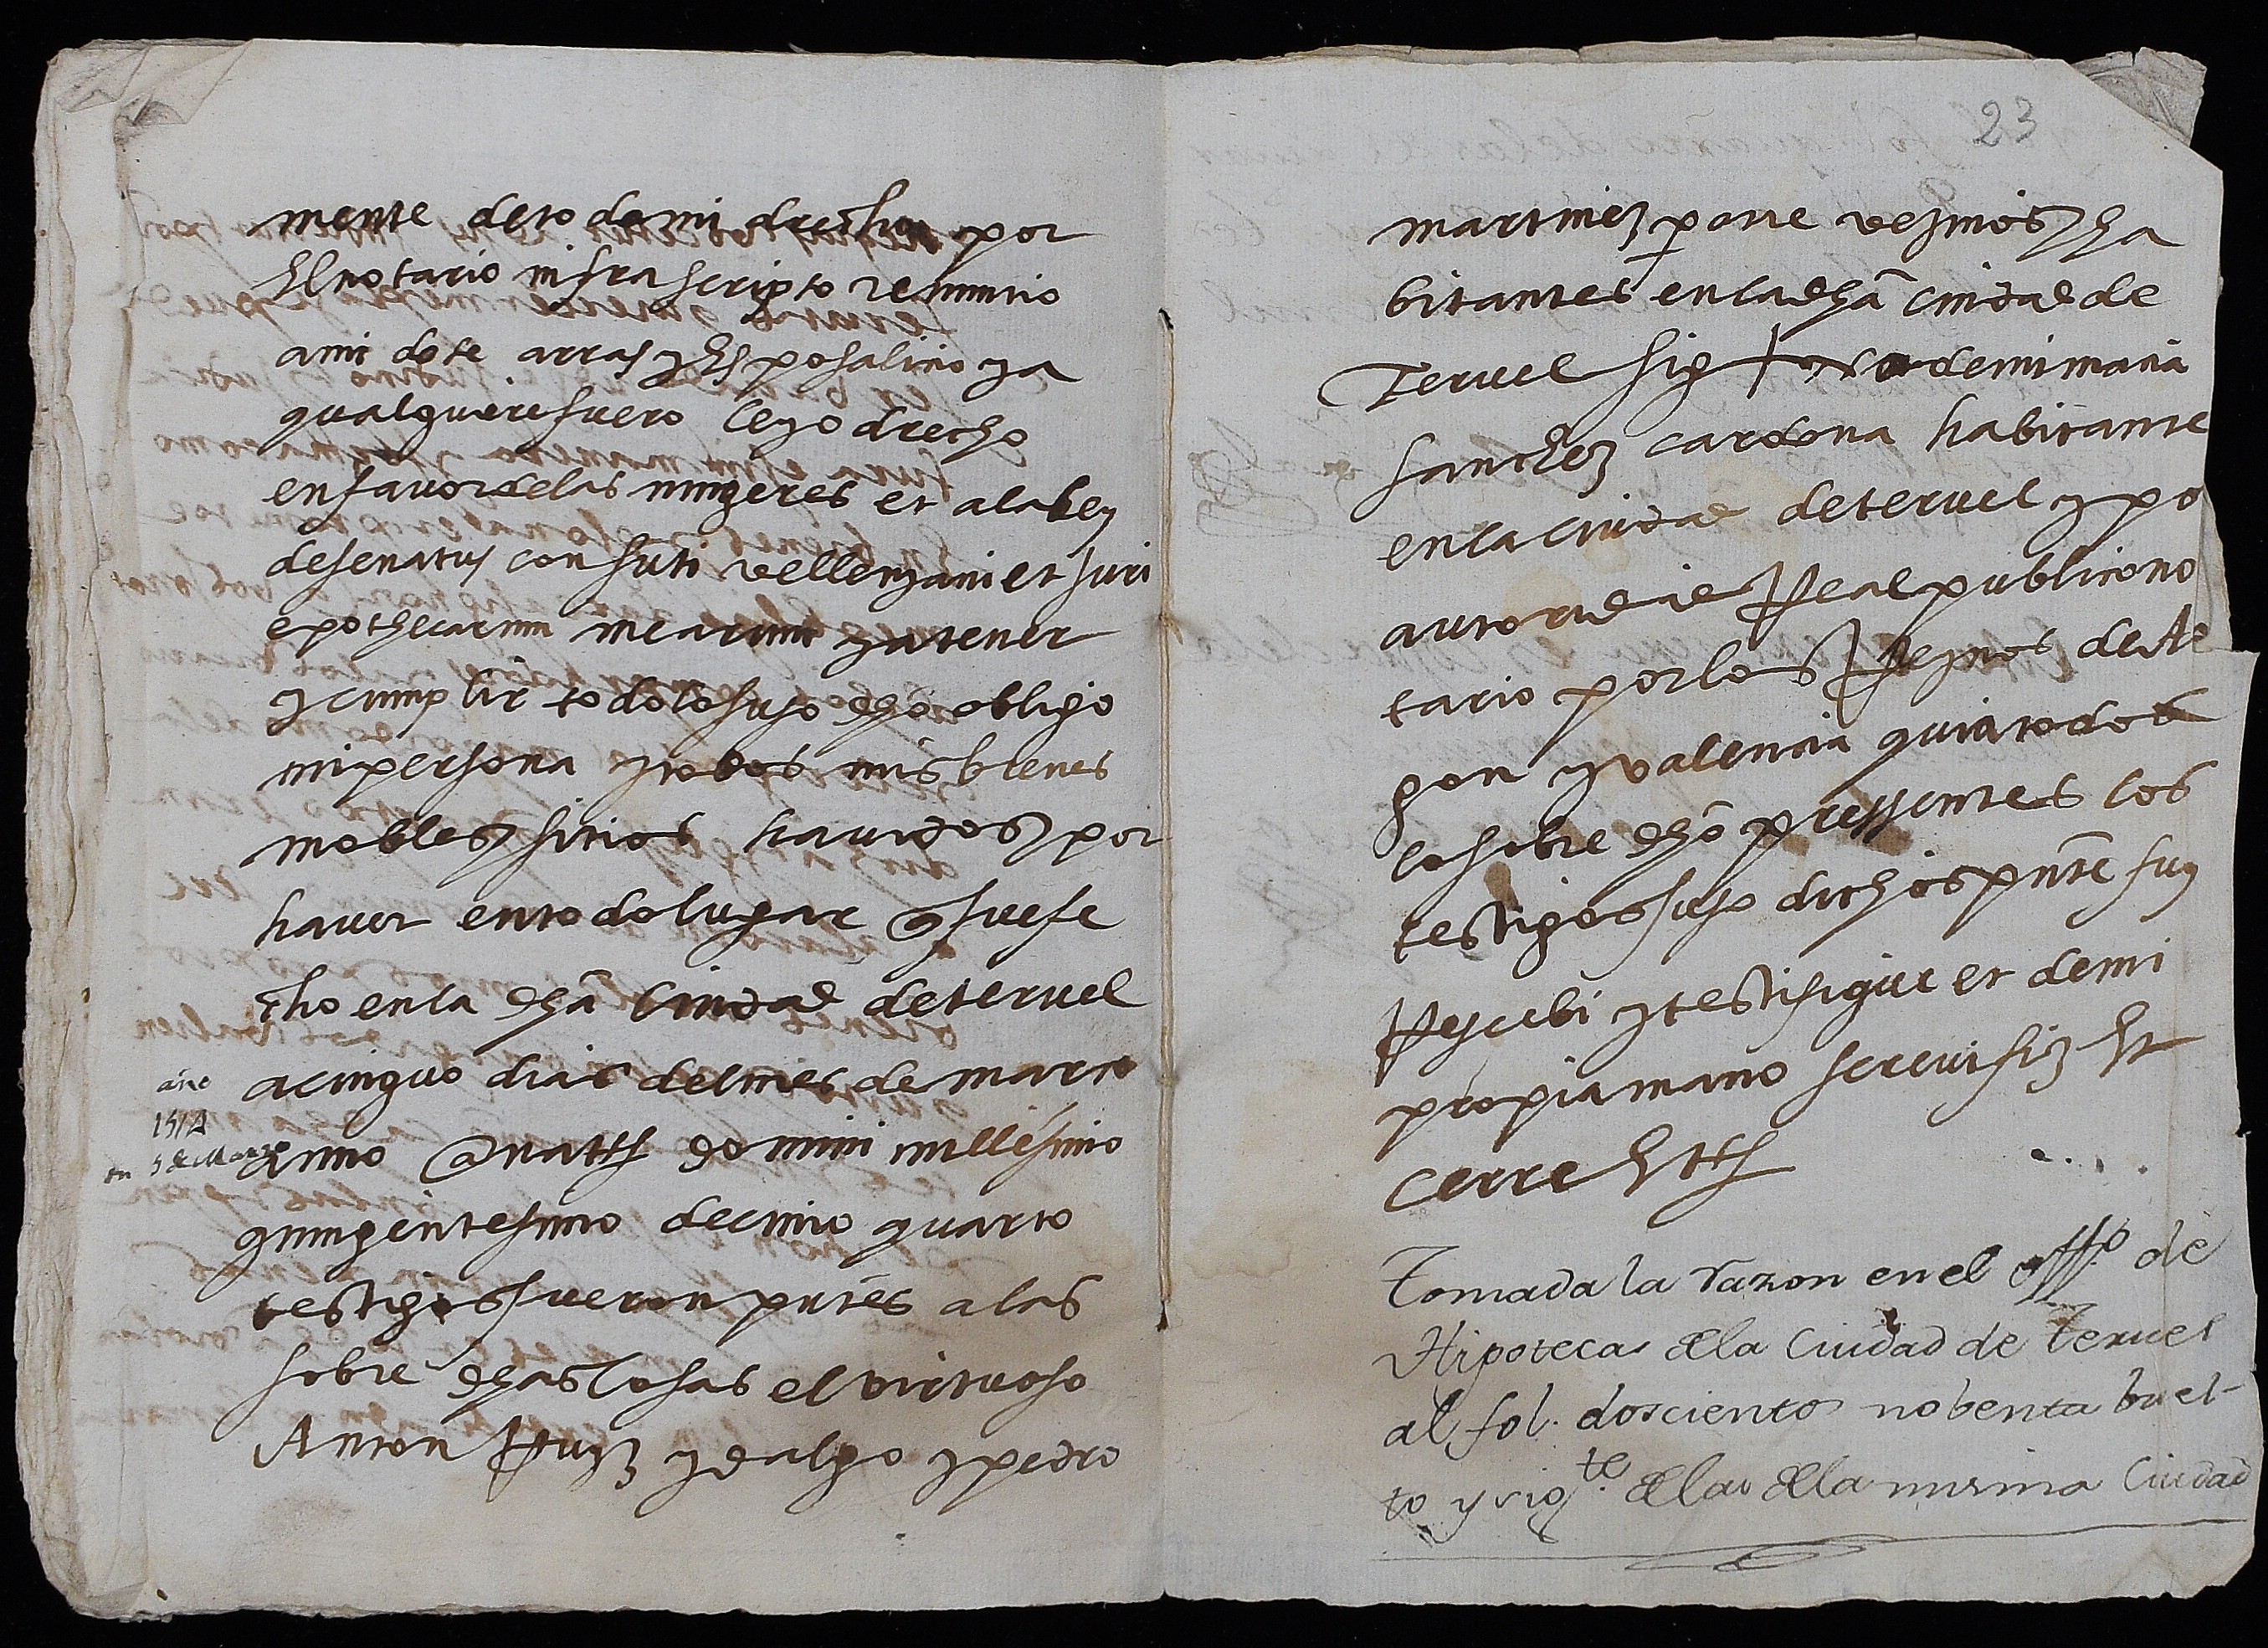 mente de todo mi drecho por
El notario infrascripto renuncio
a mi dote arras y Esposalicio y a
qualquiere fuero ley o drecho
en favor de las mugeres et a la ley
de senatus consulti velleyani et juri
epothecarum mearum y a tener
y cumplir todo lo suso dho obligo
mi persona y todos mis bienes
mobles y sitios havidos y por
haver en todo lugar q fuese
cho en la dha Ciudad de teruel
a cinquo dias del mes de março
Anno a natt domini millesimo
quingentesimo decimo quarto
testigos fueron pntes a las
sobre dhas cosas el virtuoso
Anton Ruyz ydalgo y pedro
año
1514
en 5 de Março
23
martinez vezinos y ha
bitantes en la dha ciudad de
Teruel Sig no de mi maria
sanchez cardona habitante
en la ciudad de teruel y po
autoridad Real publico no
tario por los Reynos de Ara
gon y valencia qui a todo
lo sobre dho pressentes los
testigos suso dichos pnte fuy
Rescebi y testifique et de mi
propia mano screvir fiz Et
cerre
Tomada la razon en el offº de
Hipotecas de la Ciudad de Teruel
al fol. doscientos nobenta buel-
to y sigte de las de la misma Ciudad